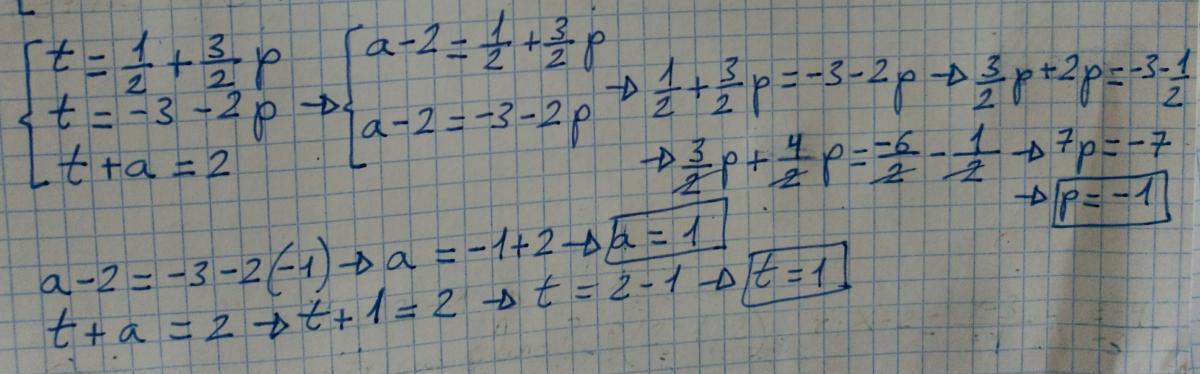 t = 1/2 + 3/2 p → a - 2 = 1/2 + 3/2 p
t = -3 - 2p → a - 2 = -3 - 2p → 1/2 + 3/2 p = -3 - 2p → 3/2 p + 2p = -3 - 1/2
t + a = 2
→ 3/2 p + 4/2 p = -6/2 - 1/2 → 7p = -7
→ p = -1
a - 2 = -3 - 2(-1) → a = -1 + 2 → a = 1
t + a = 2 → t + 1 = 2 → t = 2 - 1 → t = 1